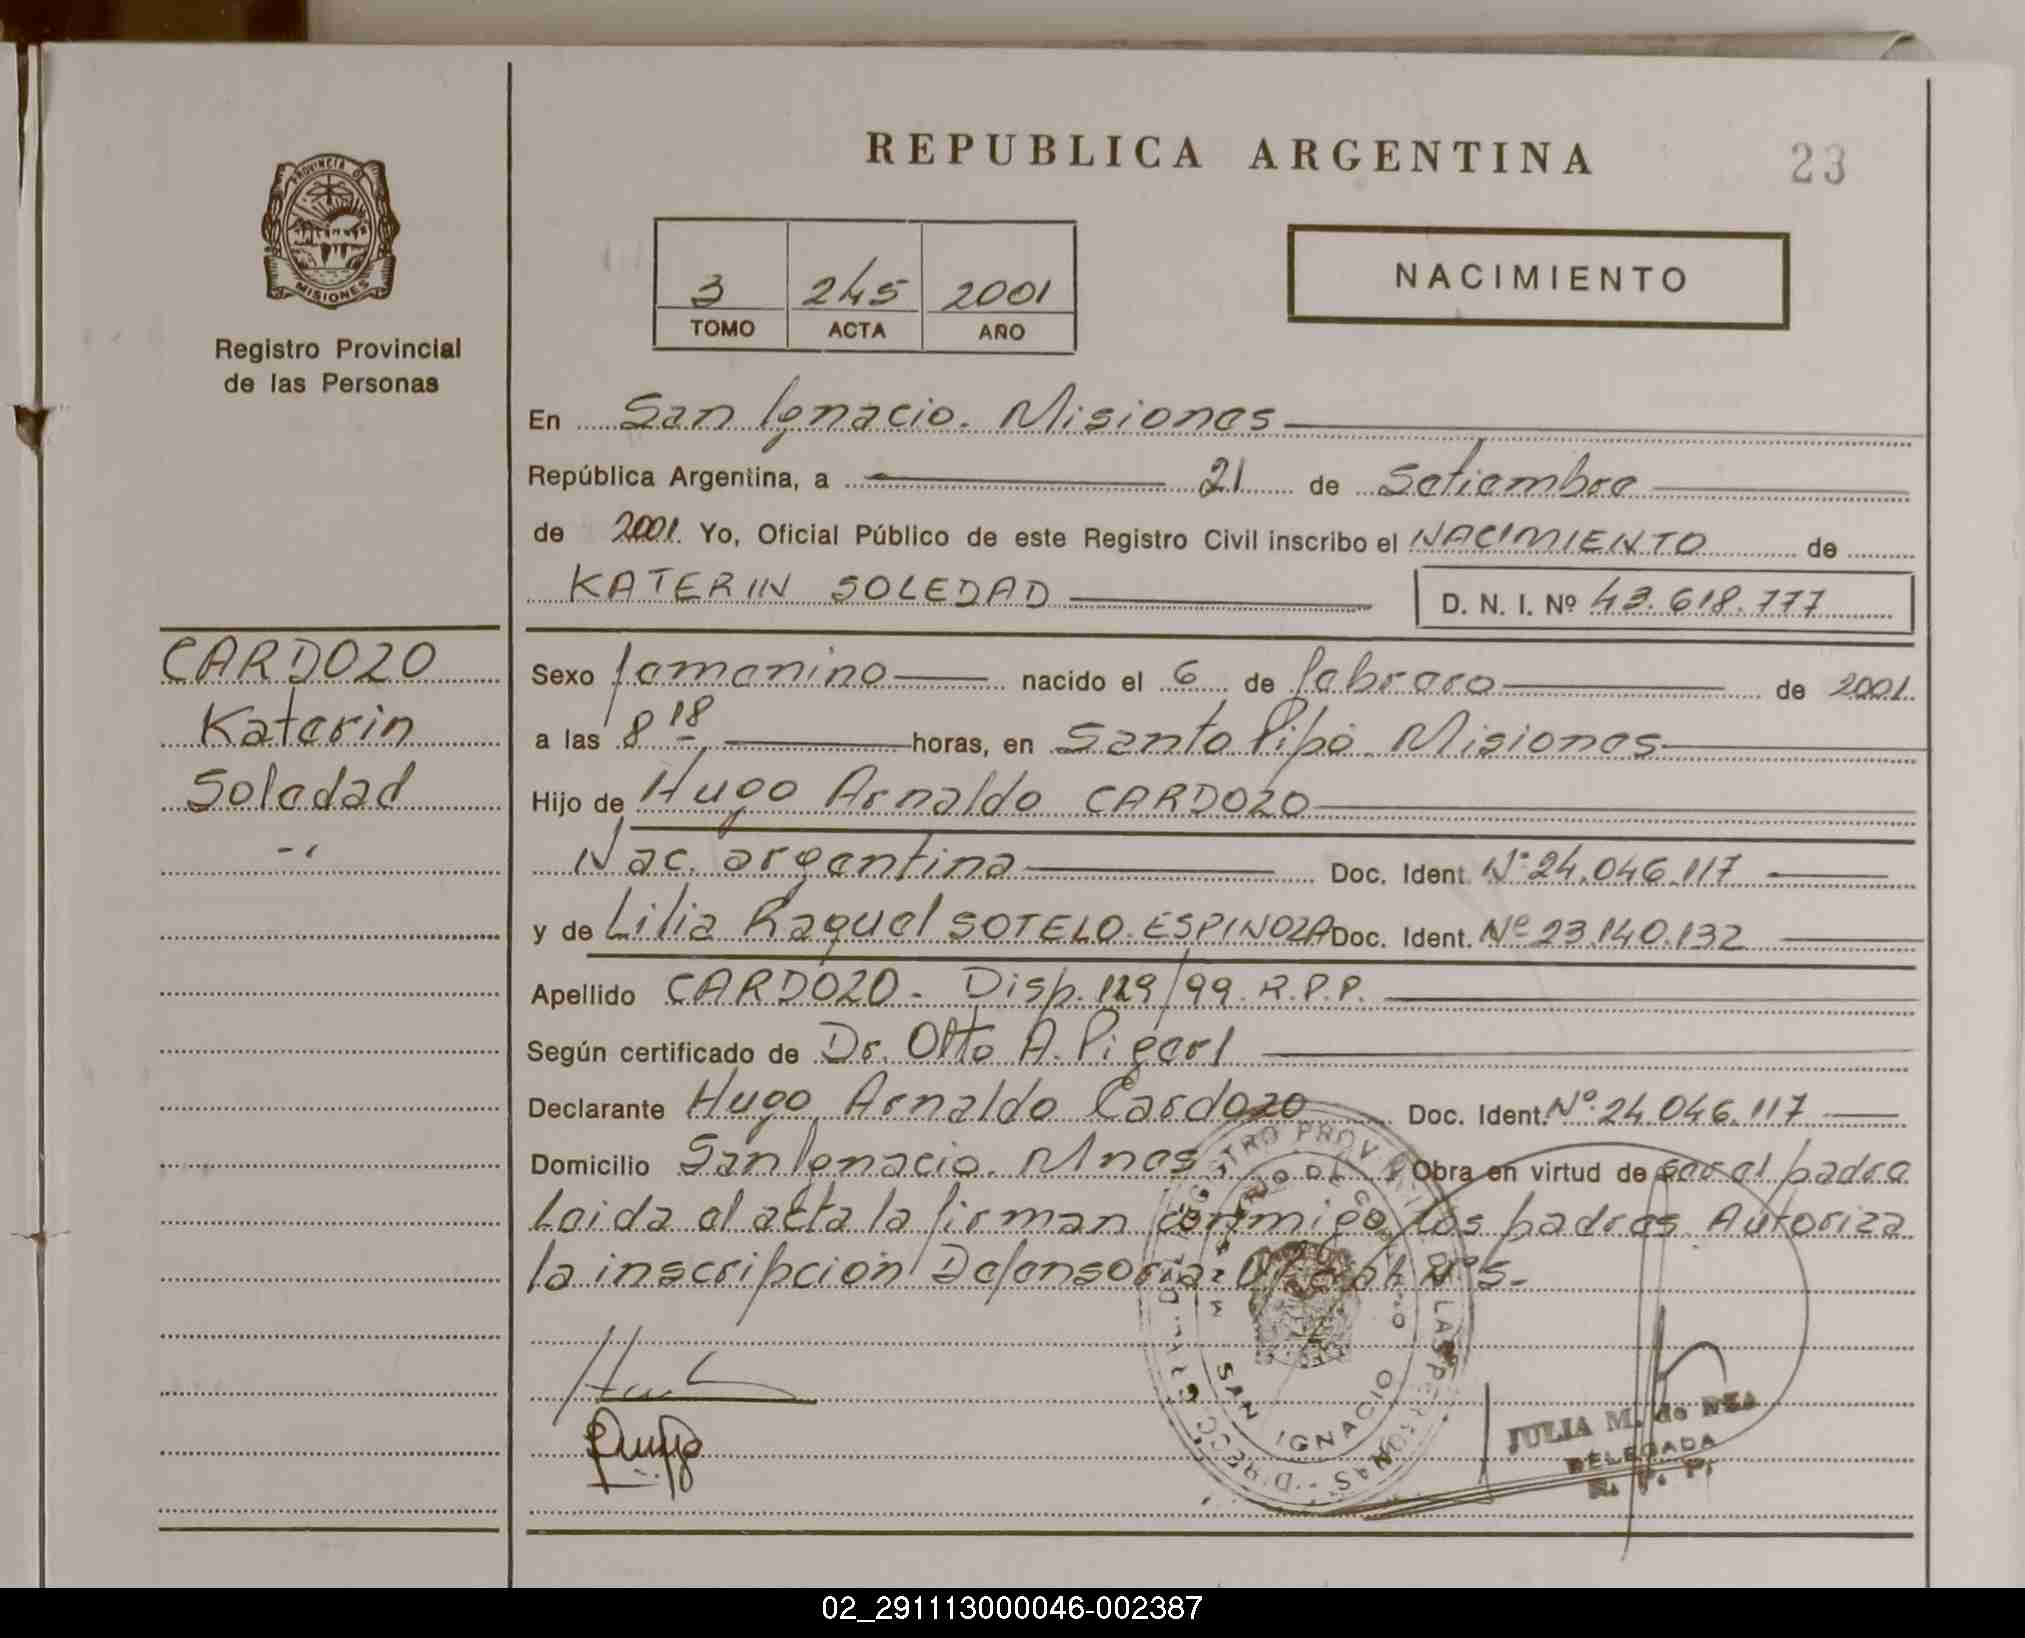 REPUBLICA ARGENTINA
23
PROVINCIA DE
MISIONES
Registro Provincial
de las Personas
3 245 2001
TOMO ACTA AÑO
NACIMIENTO
En San Ignacio. Misiones
República Argentina, a 21 de Setiembre
de 2001. Yo, Oficial Público de este Registro Civil inscribo el NACIMIENTO de
KATERIN SOLEDAD D. N. I. Nº 43.618.777
CARDOZO
Katerin
Soledad
Sexo femenino nacido el 6 de febrero de 2001
a las 8 18 horas, en Santo Pipó. Misiones
Hijo de Hugo Arnaldo CARDOZO
Nac. argentina Doc. Ident. Nº 24.046.117
y de Lilia Raquel SOTELO ESPINOZA Doc. Ident. Nº 23.140.132
Apellido CARDOZO - Disp. 129/99. R.P.P.
Según certificado de Dr. Otto A. Pigerl
Declarante Hugo Arnaldo Cardozo Doc. Ident. Nº 24.046.117
Domicilio San Ignacio. Mnes. Obra en virtud de ser el padre
Leida el acta la firman conmigo los padres. Autoriza
la inscripción Defensoria Oficial Nº 5.-
SAN IGNACIO
JULIA M. de
DELEGADA
R. P. P.
02_291113000046-002387